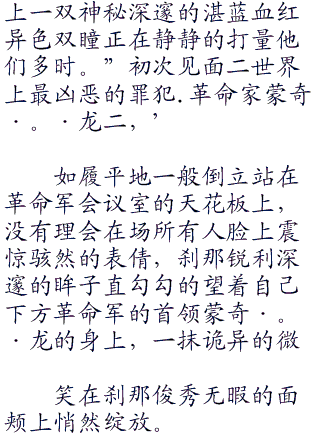 上一双神秘深邃的湛蓝血红
异色双瞳正在静静的打量他
们多时。”初次见面二世界
上最凶恶的罪犯.革命家蒙奇
·。·龙二,’
如履平地一般倒立站在
革命军会议室的天花板上，
没有理会在场所有人脸上震
惊骇然的表倩，刹那锐利深
邃的眸子直勾勾的望着自己
下方革命军的首领蒙奇·。
·龙的身上，一抹诡异的微
笑在刹那俊秀无暇的面
颊上悄然绽放。